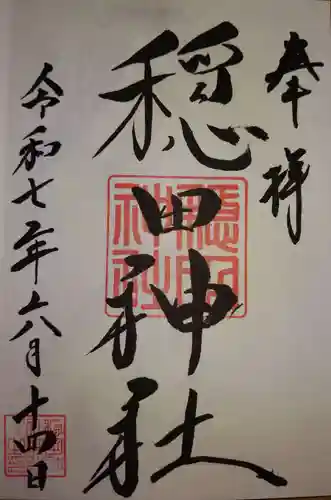 奉拝
穏田神社
穏田神社
令和七年六月十四日